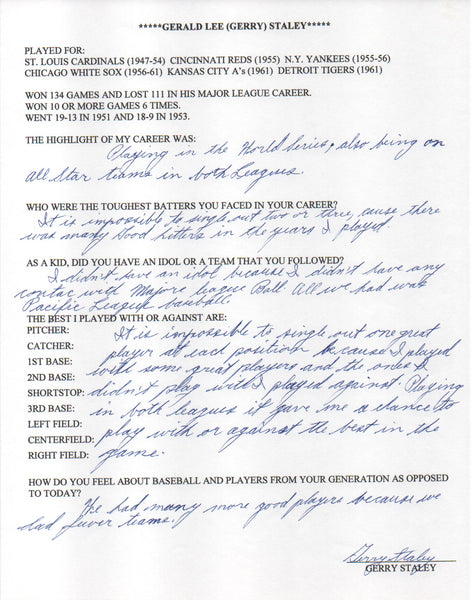 *****GERALD LEE (GERRY) STALEY*****
PLAYED FOR:
ST. LOUIS CARDINALS (1947-54) CINCINNATI REDS (1955) N.Y. YANKEES (1955-56)
CHICAGO WHITE SOX (1956-61) KANSAS CITY A's (1961) DETROIT TIGERS (1961)
WON 134 GAMES AND LOST 111 IN HIS MAJOR LEAGUE CAREER.
WON 10 OR MORE GAMES 6 TIMES.
WENT 19-13 IN 1951 AND 18-9 IN 1953.
THE HIGHLIGHT OF MY CAREER WAS:
Playing in the World Series, also being on
all Star teams in both Leagues.
WHO WERE THE TOUGHEST BATTERS YOU FACED IN YOUR CAREER?
It is impossible to single out two or three, cause there
was many Good hitters in the years I played.
AS A KID, DID YOU HAVE AN IDOL OR A TEAM THAT YOU FOLLOWED?
I didn't have an idol because I didn't have any
contac with Majore league Ball. All we had was
Pacific League baseball.
THE BEST I PLAYED WITH OR AGAINST ARE:
PITCHER: It is impossible to single out one great
CATCHER: player at each position because I played
1ST BASE: with some great players and the ones I
2ND BASE:
SHORTSTOP: didn't play with I played against. Playing
3RD BASE: in both leagues it gave me a chance to
LEFT FIELD:
CENTERFIELD: play with or against the best in the
RIGHT FIELD: game.
HOW DO YOU FEEL ABOUT BASEBALL AND PLAYERS FROM YOUR GENERATION AS OPPOSED
TO TODAY?
We had many more good players because we
had fewer teams.
Gerry Staley
GERRY STALEY